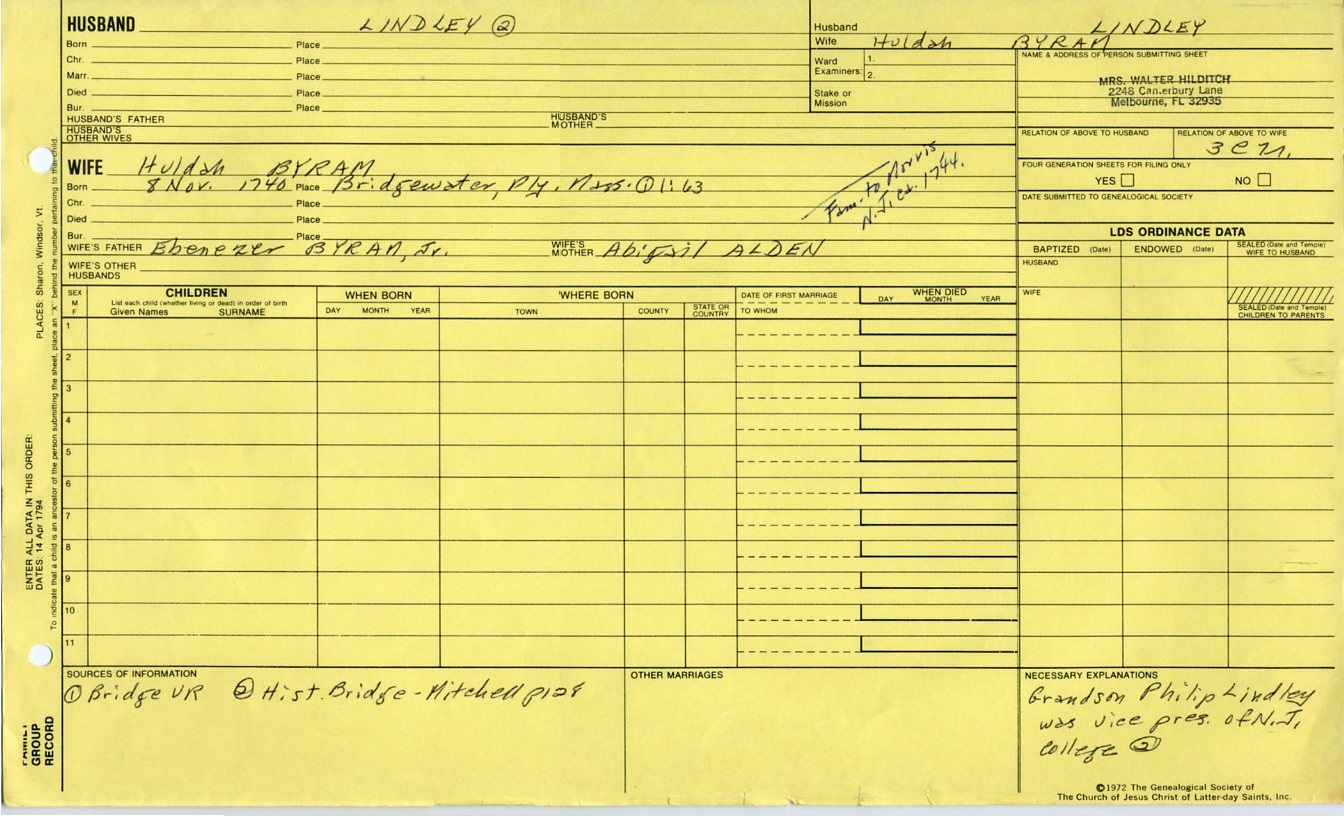 HUSBAND LINDLEY ②
Born Place
Chr. Place
Marr. Place
Died Place
Bur. Place
HUSBAND'S FATHER HUSBAND'S MOTHER
HUSBAND'S OTHER WIVES
Husband LINDLEY
Wife Huldah BYRAM
Ward Examiners: 1.
2.
Stake or Mission
NAME & ADDRESS OF PERSON SUBMITTING SHEET
MRS. WALTER HILDITCH
2248 Canterbury Lane
Melbourne, FL 32935
RELATION OF ABOVE TO HUSBAND RELATION OF ABOVE TO WIFE
3 C 7 r.
FOUR GENERATION SHEETS FOR FILING ONLY
YES NO
DATE SUBMITTED TO GENEALOGICAL SOCIETY
WIFE Huldah BYRAM
Born 8 Nov. 1740 Place Bridgewater, Ply. Mass. ① 1:63
Chr. Place
Died Place
Bur. Place
Fam. to Morris
N.J. ca. 1744.
WIFE'S FATHER Ebenezer BYRAM, Jr. WIFE'S MOTHER Abigail ALDEN
WIFE'S OTHER HUSBANDS
LDS ORDINANCE DATA
BAPTIZED (Date) ENDOWED (Date) SEALED (Date and Temple) WIFE TO HUSBAND
HUSBAND
WIFE
SEALED (Date and Temple) CHILDREN TO PARENTS
SEX M F
CHILDREN
List each child (whether living or dead) in order of birth
Given Names SURNAME
WHEN BORN
DAY MONTH YEAR
WHERE BORN
TOWN COUNTY STATE OR COUNTRY
DATE OF FIRST MARRIAGE
TO WHOM
WHEN DIED
DAY MONTH YEAR
1
2
3
4
5
6
7
8
9
10
11
SOURCES OF INFORMATION
① Bridge VR ② Hist. Bridge - Mitchell p128
OTHER MARRIAGES
NECESSARY EXPLANATIONS
Grandson Philip Lindley
was vice pres. of N.J.
College ②
©1972 The Genealogical Society of
The Church of Jesus Christ of Latter-day Saints, Inc.
PLACES: Sharon, Windsor, Vt.
To indicate that a child is an ancestor of the person submitting the sheet, place an "X" behind the number pertaining to that child.
ENTER ALL DATA IN THIS ORDER:
DATES: 14 Apr 1794
FAMILY
GROUP
RECORD